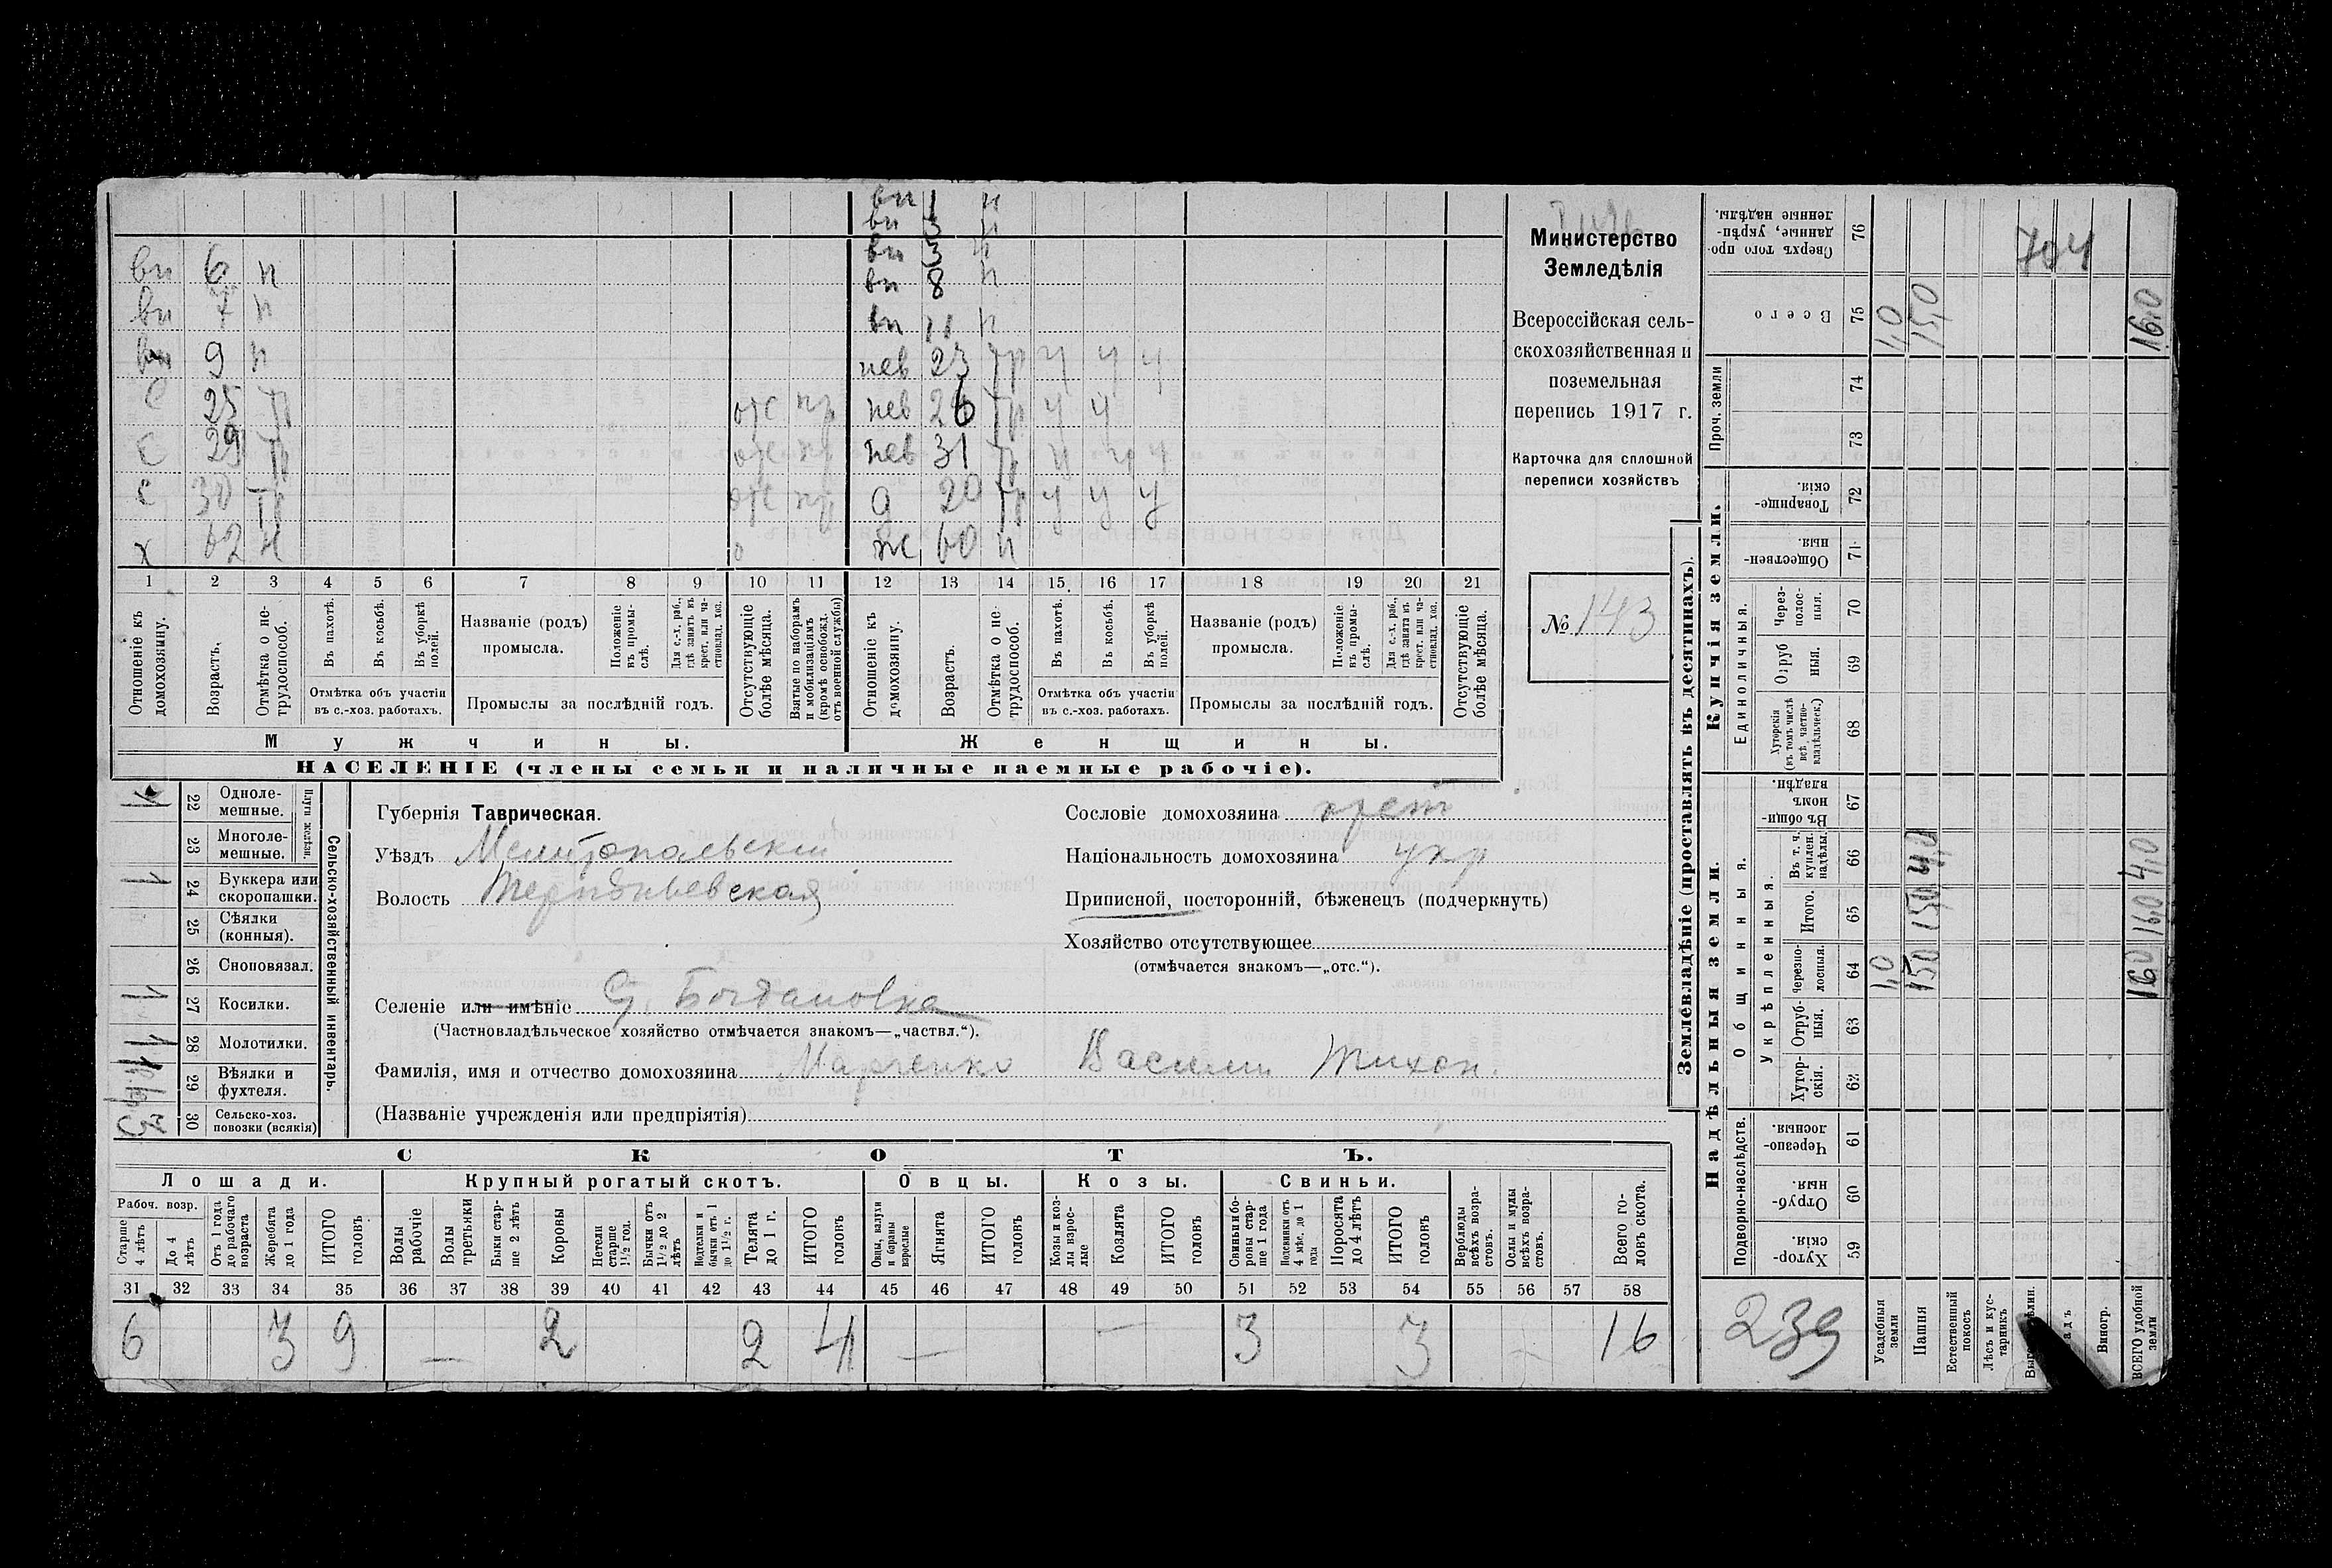 вн 1 н
вн 3 н
вн 5 н
вн 6 н вн 8 н
вн 7 н вн 11 н
вн 9 н нев 23 тр у у у
с 25 тр отс нр нев 26 тр у у
с 29 тр отс нр нев 31 тр у у у
с 30 тр отс нр д 20 тр у у у
х 62 н ж 60 н
1 2 3 4 5 6 7 8 9 10 11 12 13 14 15 16 17 18 19 20 21
Отношеніе къ домохозяину.
Возрастъ.
Отмѣтка о не-трудоспособ.
Въ пахотѣ.
Въ косьбѣ.
Въ уборкѣ полей.
Отмѣтка объ участіи въ с.-хоз. работахъ.
Названіе (родъ) промысла.
Положеніе въ промы-слѣ.
Для с.-х. раб., гдѣ занятъ въ крест. или ча-стновлад. хоз.
Промыслы за послѣдній годъ.
Отсутствующіе болѣе мѣсяца.
Взятые по наборамъ и мобилизаціямъ (кромѣ освобожд. отъ военной службы)
Отношеніе къ домохозяину.
Возрастъ.
Отмѣтка о не-трудоспособ.
Въ пахотѣ.
Въ косьбѣ.
Въ уборкѣ полей.
Отмѣтка объ участіи въ с.-хоз. работахъ.
Названіе (родъ) промысла.
Положеніе въ промы-слѣ.
Для с.-х. раб., гдѣ занята въ крест. или ча-стновлад. хоз.
Промыслы за послѣдній годъ.
Отсутствующіе болѣе мѣсяца.
Мужчины. Женщины.
НАСЕЛЕНІЕ (члены семьи и наличные наемные рабочіе).
Министерство
Земледѣлія
Всероссійская сель-
скохозяйственная и
поземельная
перепись 1917 г.
Карточка для сплошной
переписи хозяйствъ
№ 143
Сельско-хозяйственный инвентарь.
Плуги желѣзн.
22 Одноле-мешные.
23 Многоле-мешные.
1 24 Буккера или скоропашки.
25 Сѣялки (конныя).
26 Сноповязал.
1 27 Косилки.
1 28 Молотилки.
1 29 Вѣялки и фухтеля.
3 30 Сельско-хоз. повозки (всякія)
Губернія Таврическая.
Уѣздъ Мелитопольскій
Волость Терпѣньевская
Селеніе или имѣніе С. Богдановка
(Частновладѣльческое хозяйство отмѣчается знакомъ—„частвл.“).
Фамилія, имя и отчество домохозяина Марченко Василий Тихон.
(Названіе учрежденія или предпріятія)
Сословіе домохозяина крест
Національность домохозяина укр
Приписной, посторонній, бѣженецъ (подчеркнуть)
Хозяйство отсутствующее
(отмѣчается знакомъ—„отс.“).
СКОТЪ.
Лошади. Крупный рогатый скотъ. Овцы. Козы. Свиньи.
Рабоч. возр.
Старше 4 лѣтъ
До 4 лѣтъ
Отъ 1 года до рабочаго возраста
Жеребята до 1 года
ИТОГО головъ
Волы рабочіе
Волы третьяки
Быки стар-ше 2 лѣтъ
Коровы
Нетели старше 1 1/2 год.
Бычки отъ 1 1/2 до 2 лѣтъ
Подтелки и бычки отъ 1 до 1 1/2 г.
Телята до 1 г.
ИТОГО головъ
Овцы, валухи и бараны взрослые
Ягнята
ИТОГО головъ
Козы и коз-лы взрос-лые
Козлята
ИТОГО головъ
Свиньи и бо-ровы стар-ше 1 года
Подсвинки отъ 4 мѣс. до 1 года
Поросята до 4 лѣтъ
ИТОГО головъ
Верблюды всѣхъ возра-стовъ.
Ослы и мулы всѣхъ возра-стовъ.
Всего го-ловъ скота.
31 32 33 34 35 36 37 38 39 40 41 42 43 44 45 46 47 48 49 50 51 52 53 54 55 56 57 58
6 3 9 — 2 2 4 — — 3 3 16
Землевладѣніе (проставлять въ десятинахъ).
Надѣльныя земли. Купчія земли.
Подворно-наслѣдств.
Общинныя.
Укрѣпленныя.
Единоличныя.
Проч. земли
Сверхъ того про-данные, укрѣп-ленные надѣлы. 76 704
Всего 75 1,0 15,0 16,0
74
73
Товарище-скія. 72
Обществен-ныя. 71
Через-полос-ныя. 70
Отруб ныя. 69
Хуторскія (въ томъ числѣ всѣ частно-владѣльческ.) 68
Въ общин-номъ владѣн. 67
Въ т. ч. куплен. надѣлы. 66 4,0 4,0
Итого. 65 15,0 16,0
Черезпо-лосныя. 64 1,0 15,0 16,0
Отруб-ныя. 63
Хутор-скія. 62
Черезпо-лосныя. 61
Отруб-ныя. 60
Хутор-скія. 59
239
Усадебныя земли
Пашня
Естественный покосъ
Лѣсъ и кус-тарникъ
Виногр.
ВСЕГО удобной земли